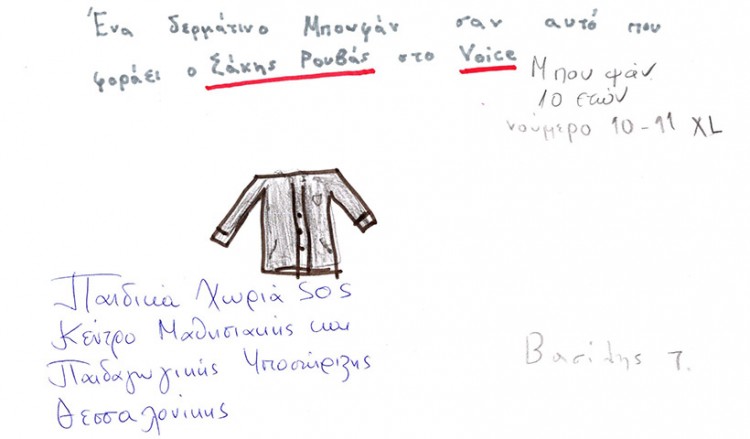 Ένα δερμάτινο Μπουφάν σαν αυτό που
φοράει ο Σάκης Ρουβάς στο Voice
Μπουφάν
10 ετών
νούμερο 10-11 XL
Παιδικά Χωριά SOS
Κέντρο Μαθησιακής και
Παιδαγωγικής Υποστήριξης
Θεσσαλονίκης
Βασίλης Τ.